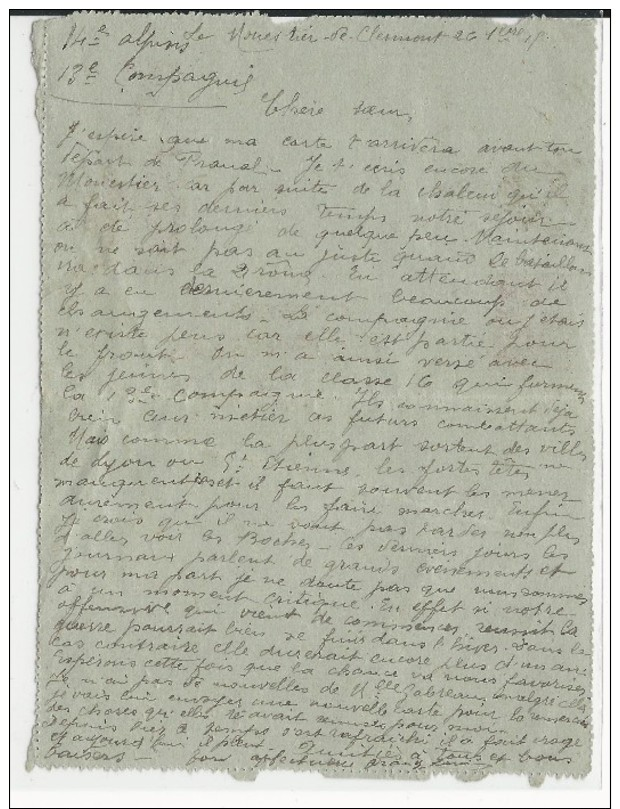 14e alpins Le Monestier-de-Clermont 26 7bre 15
13e Compagnie
Chère sœur,
J'espère que ma carte t'arrivera avant ton
départ de Je t'ecris encore du
Monestier car par suite de la chaleur qu'il
a fait ses derniers temps notre sejour
a été prolongé de quelque peu. Maintenant
on ne sait pas au juste quand le bataillon
ira dans la Drôme. En attendant il
y a eu dernierement beaucoup de
changements. La compagnie ou j'etais
n'existe plus car elle est partie pour
le front. On m'a ainsi versé avec
les jeunes de la classe 16 qui forment
la 13e Compagnie. Ils connaissent deja
bien leur metier ces futurs combattants
Mais comme la pluspart sortent des villes
de Lyon ou St Etienne, les fortes têtes ne
manquent et il faut souvent les mener
durement pour les faire marcher. Enfin
je crois qu'il ne vont pas tarder non plus
d'aller voir les Boches. Les derniers jours les
journaux parlent de grands evenements et
pour ma part je ne doute pas que nous sommes
a un moment critique. En effet si notre
offensive qui vient de commencer reussit la
guerre pourrait bien se finir dans l'hiver. Dans le
cas contraire elle durerait encore plus d'un an.
Esperons cette fois que la chance va nous favoriser
Je n'ai pas de nouvelles de Melle malgré
je vais lui envoyer une nouvelle carte pour la remercier
des choses qu'elle t'avait remises pour moi.
Depuis hier le temps s'est rafraichi il a fait orage
et aujourd'hui il pleut. à tous et bons
baisers. Ton affectueux